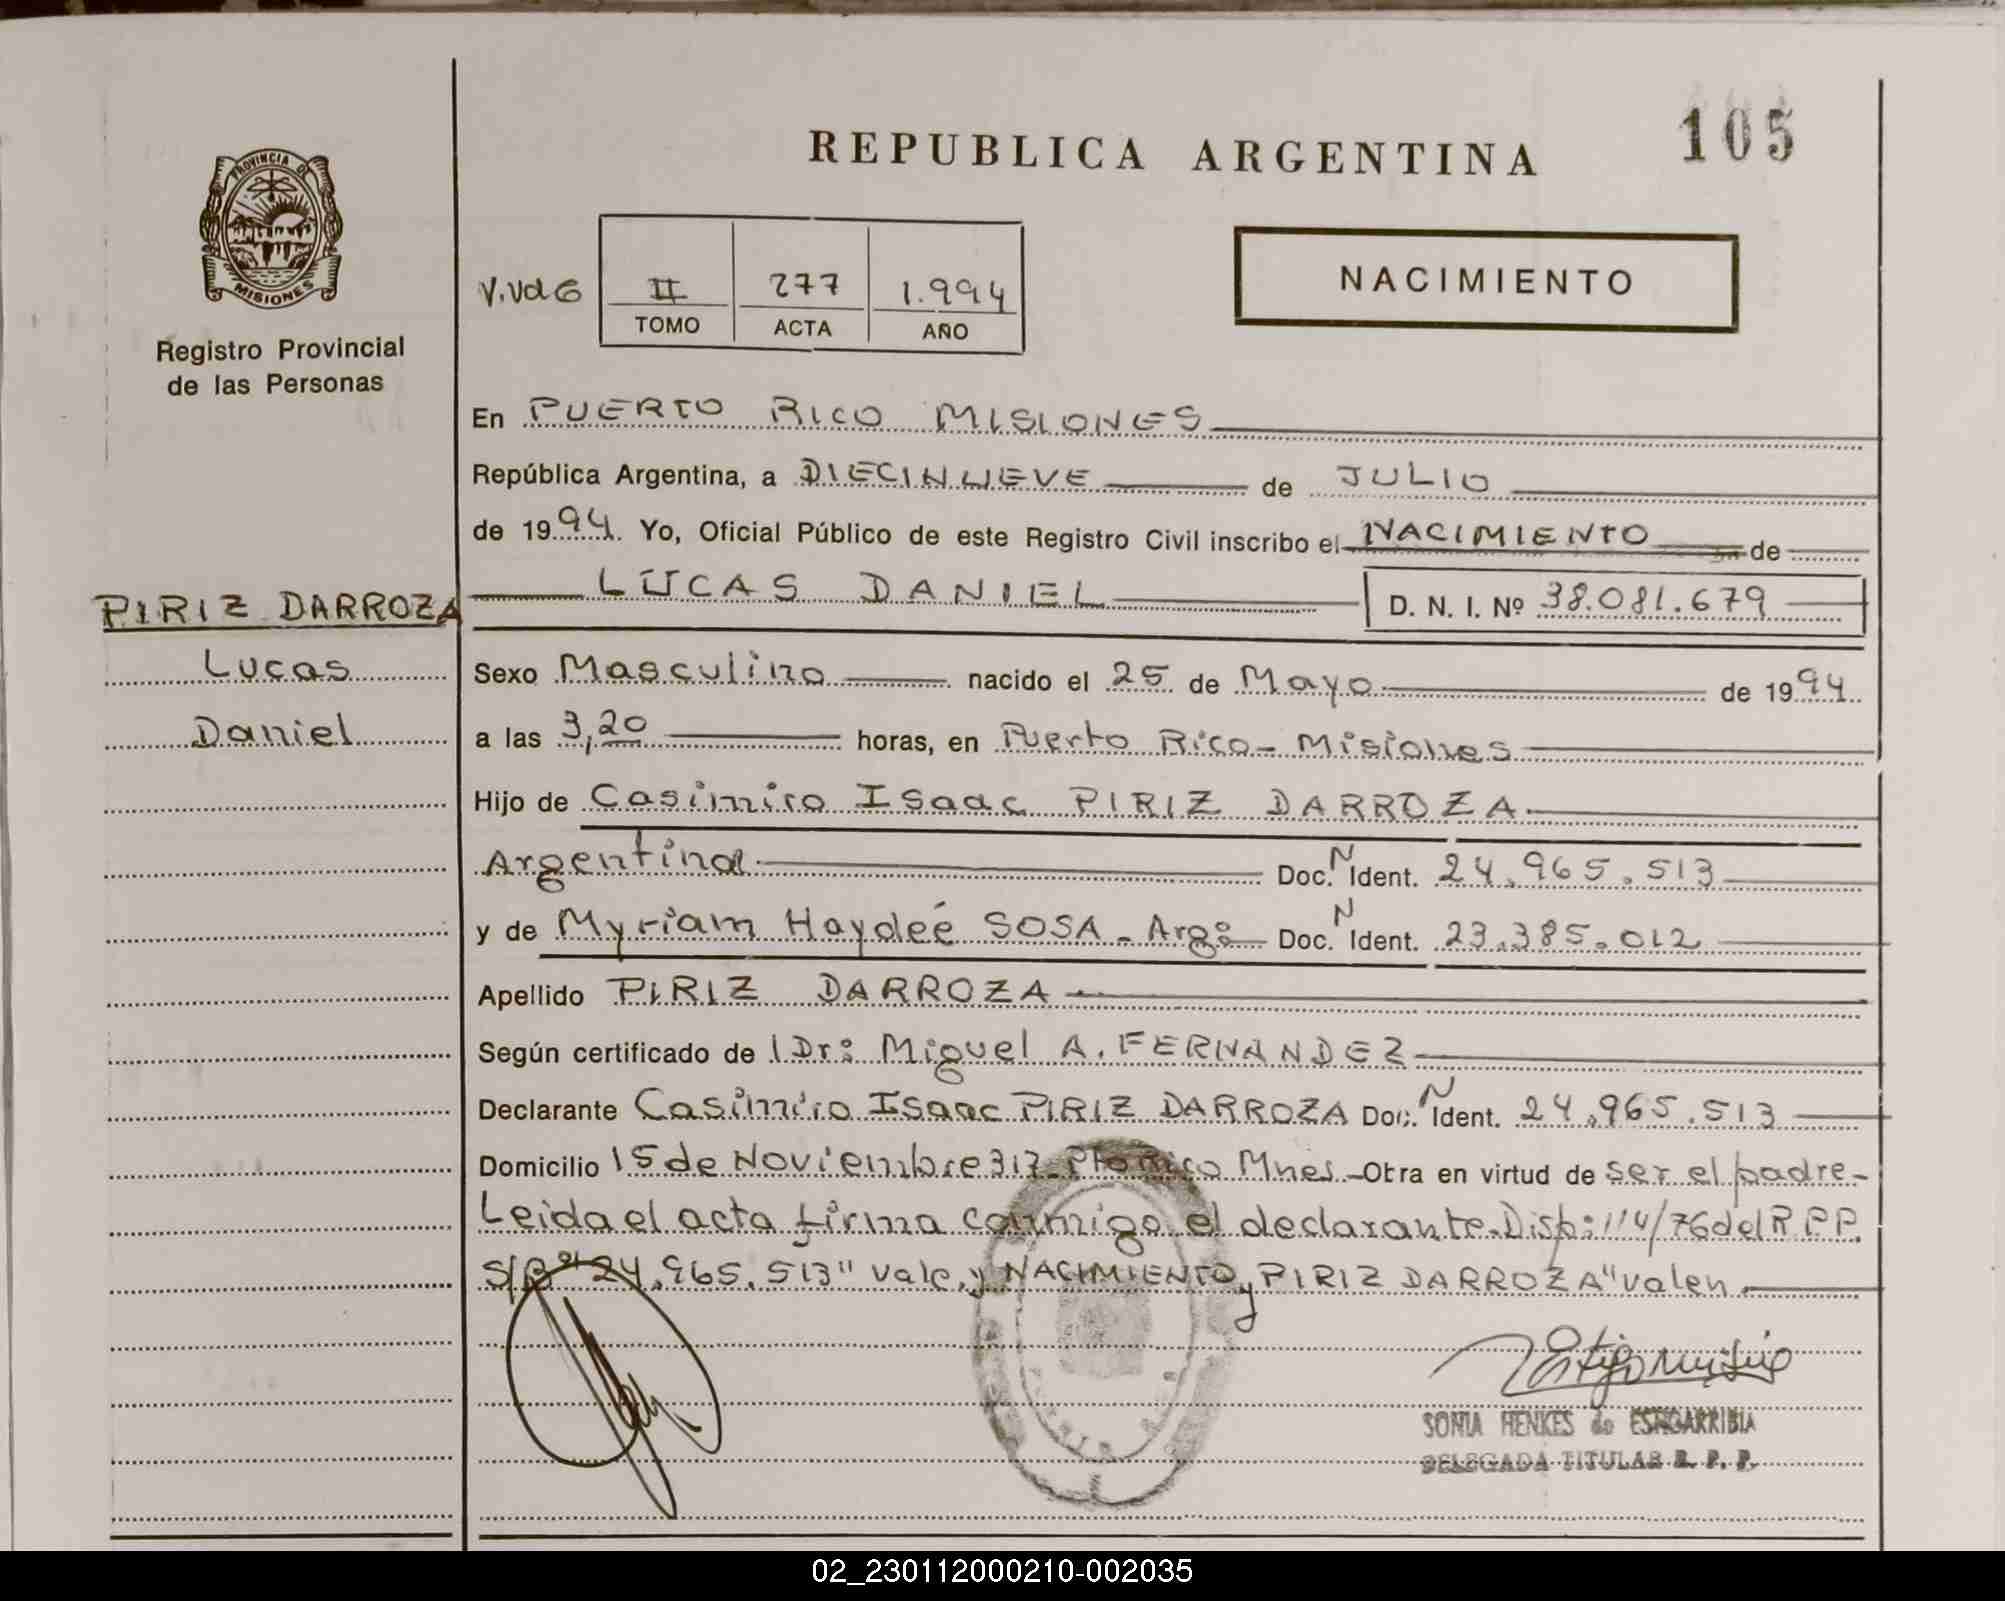 REPUBLICA ARGENTINA
105
PROVINCIA DE
MISIONES
Registro Provincial
de las Personas
II
TOMO
277
ACTA
1.994
AÑO
NACIMIENTO
En PUERTO RICO MISIONES
República Argentina, a DIECINUEVE de JULIO
de 1994. Yo, Oficial Público de este Registro Civil inscribo el NACIMIENTO de
LUCAS DANIEL D. N. I. Nº 38.081.679
PIRIZ DARROZA
Lucas
Daniel
Sexo Masculino nacido el 25 de Mayo de 1994
a las 3,20 horas, en Puerto Rico - Misiones
Hijo de Casimiro Isaac PIRIZ DARROZA
Argentina Doc. N Ident. 24.965.513
y de Myriam Haydeé SOSA - Arg: Doc. N Ident. 23.385.012
Apellido PIRIZ DARROZA
Según certificado de Dr: Miguel A. FERNANDEZ
Declarante Casimiro Isaac PIRIZ DARROZA Doc. N Ident. 24.965.513
Domicilio 15 de Noviembre 317 - Pto Rico Mnes. - Otra en virtud de ser el padre -
Leida el acta firma conmigo el declarante. Disp: 114/76 del R.P.P.
S/R "24.965.513" vale, y NACIMIENTO, y PIRIZ DARROZA" valen
SONIA HENKES de ESTIGARRIBIA
DELEGADA TITULAR R. P. P.
02_230112000210-002035